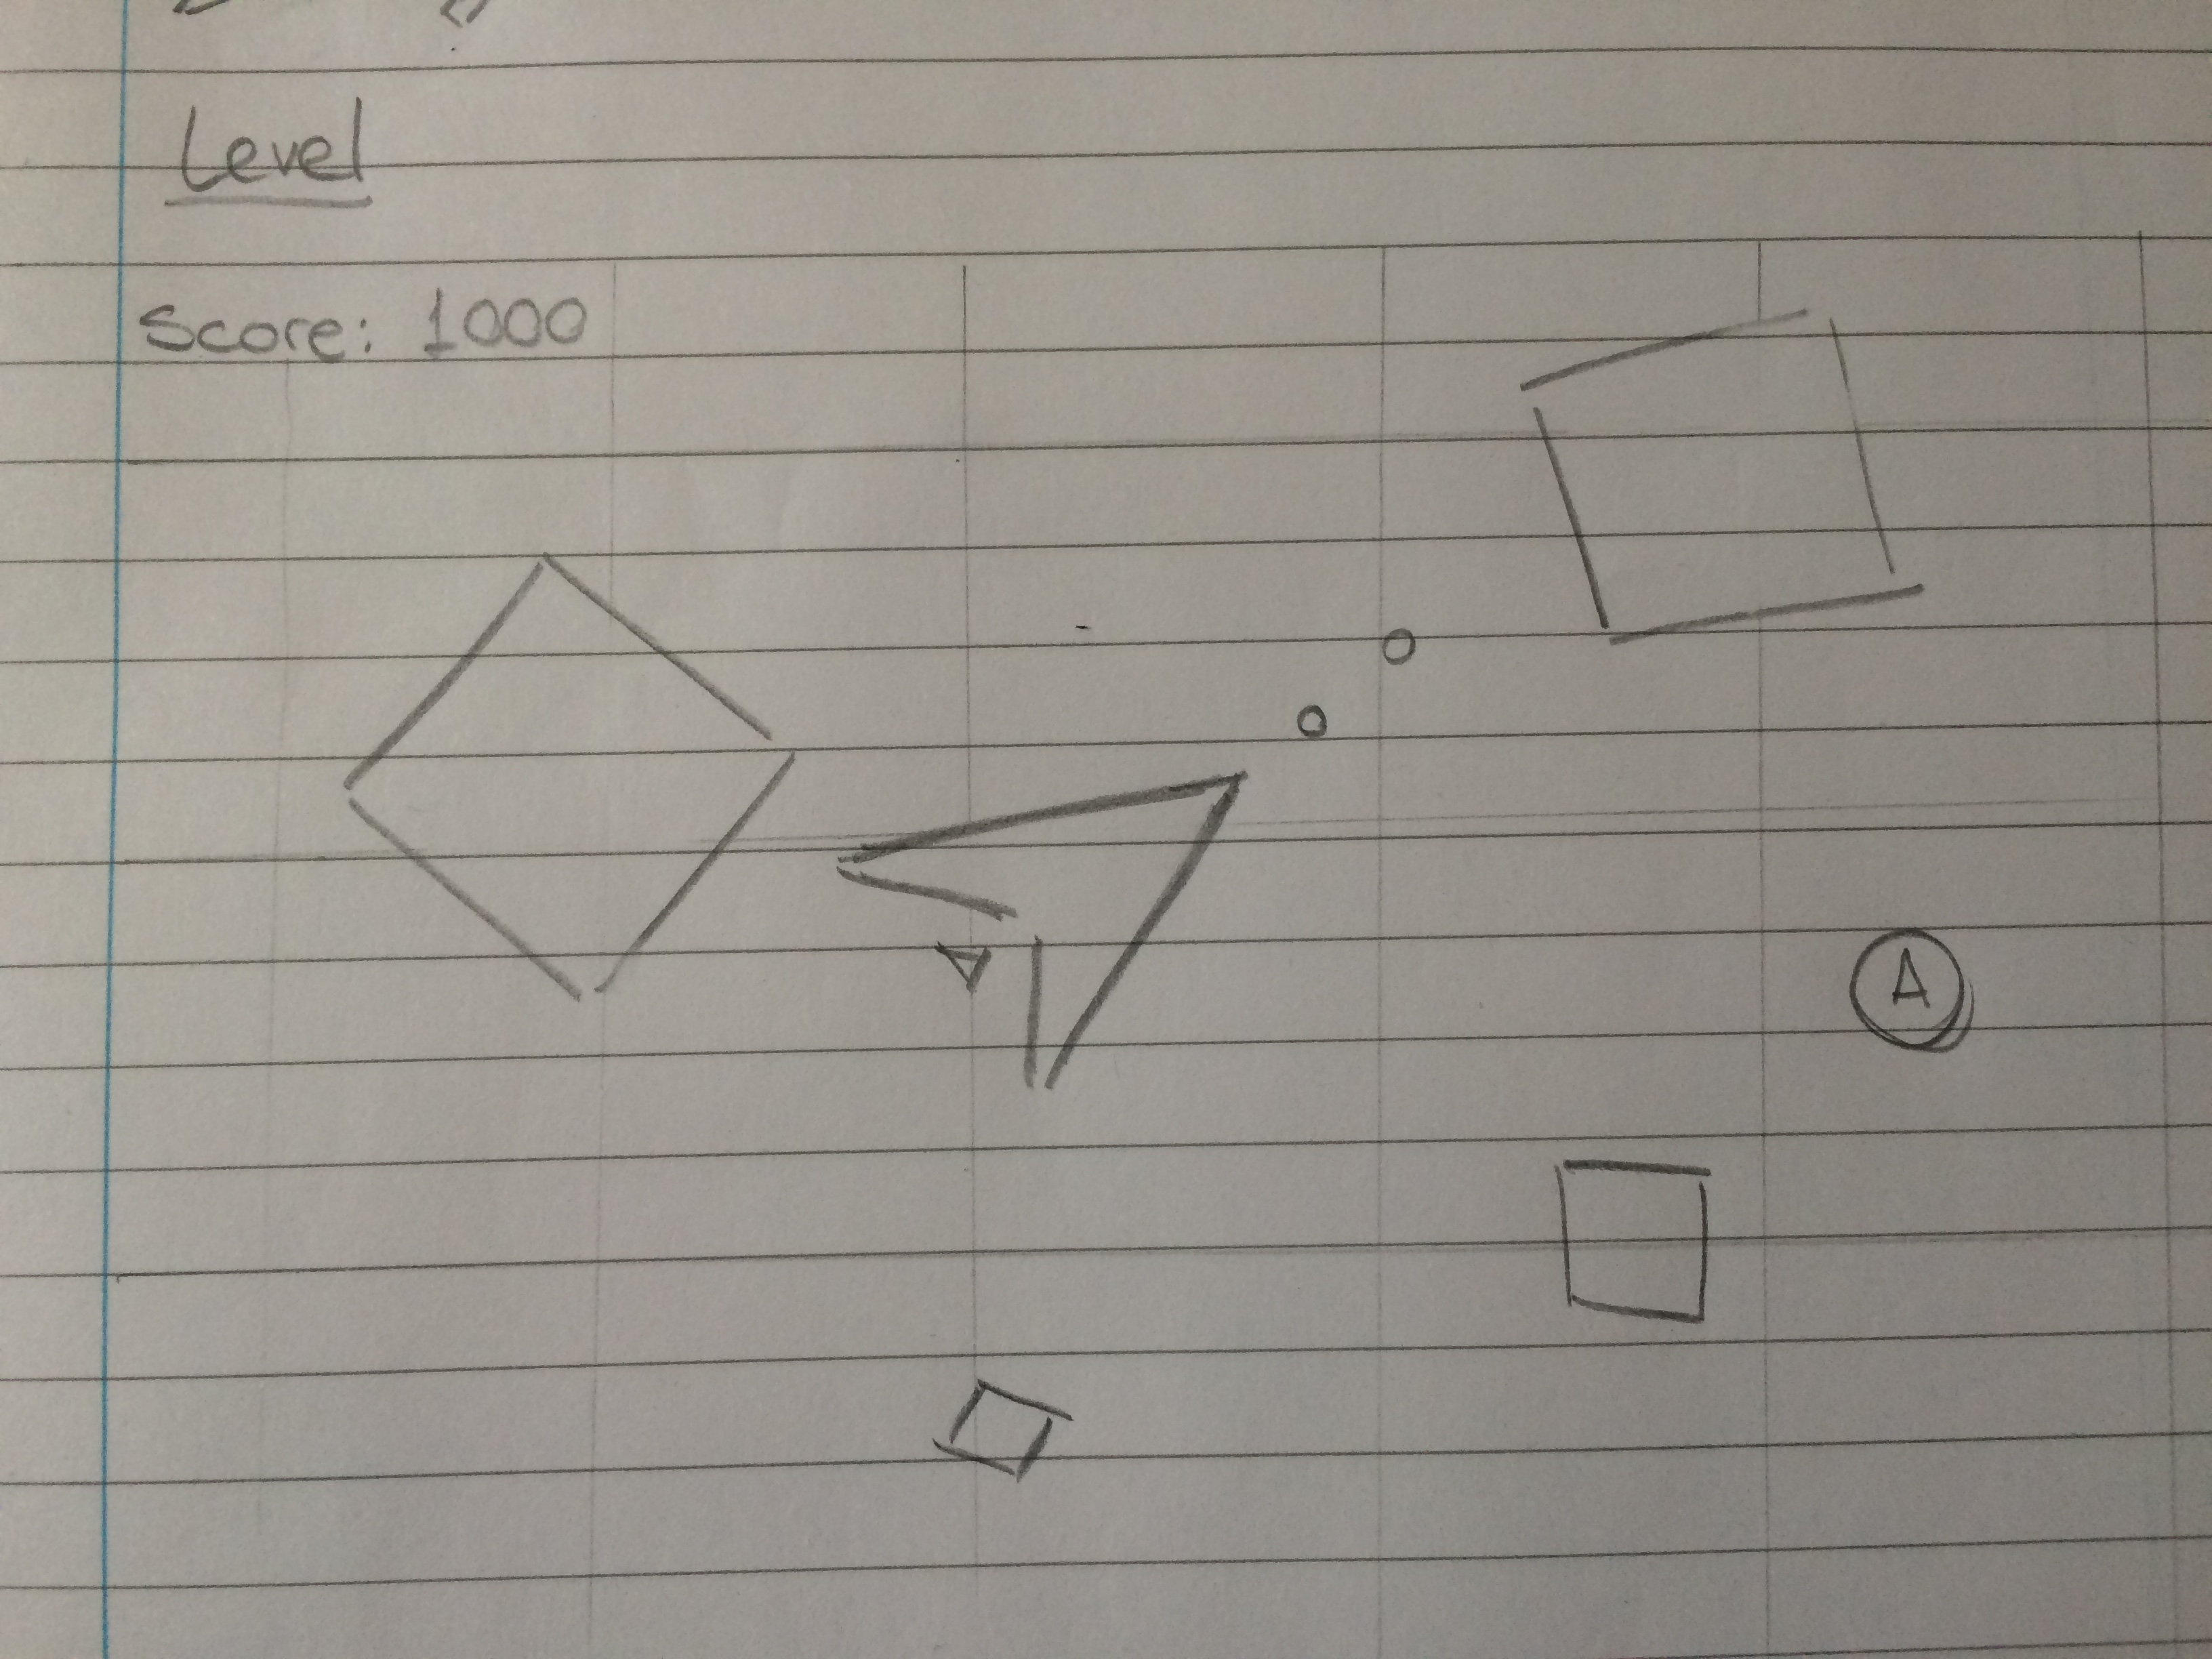 Level
Score: 1000
A